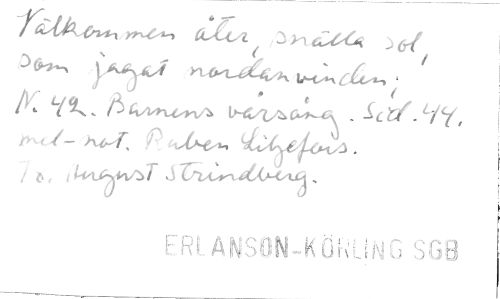 Välkommen åter, snälla sol,
som jagat nordanvinden;
N. 42. Barnens vårsång. Sid. 44.
mel-not. Ruben Liljefors.
To. August Strindberg.
ERLANSON-KÖHLING SGB